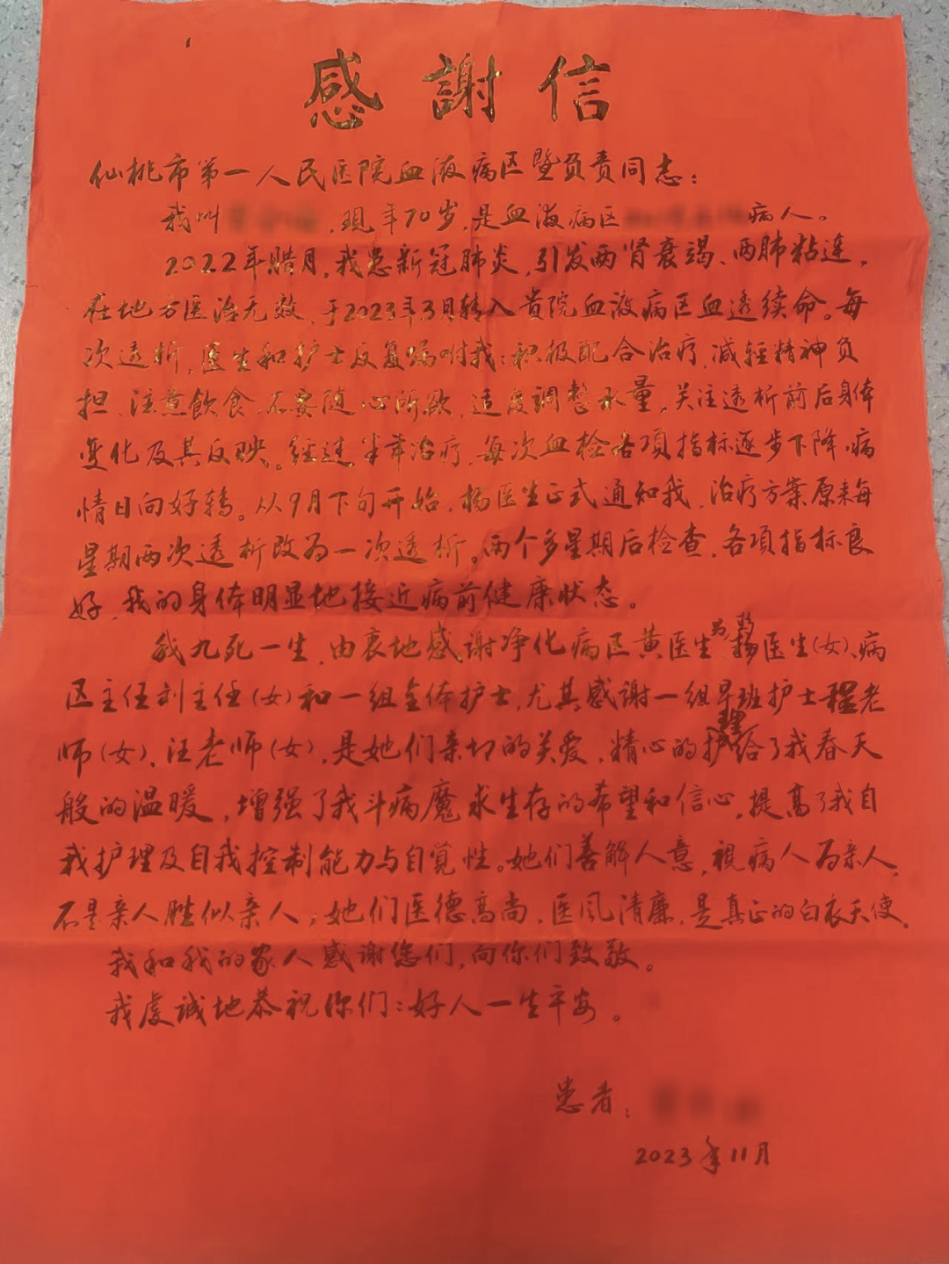 感謝信
仙桃市第一人民医院血液病区暨负责同志：
我叫 ，现年70岁，是血液病区 病人。
2022年腊月，我患新冠肺炎，引发两肾衰竭、两肺粘连，
在地方医治无效，于2023年3月转入贵院血液病区血透续命。每
次透析，医生和护士反复嘱咐我：积极配合治疗，减轻精神负
担，注意飲食，不要随心所欲，适度调整水量，关注透析前后身体
变化及其反映。经过半年治疗，每次血检各项指标逐步下降，病
情日向好转。从9月下旬开始，杨医生正式通知我，治疗方案原来每
星期两次透析改为一次透析。两个多星期后检查，各项指标良
好，我的身体明显地接近病前健康状态。
我九死一生，由衷地感谢净化病区黄医生 杨医生(女)、病
区主任刘主任(女)和一组全体护士，尤其感谢一组早班护士程老
师(女)、汪老师(女)，是她们亲切的关爱，精心的护理给了我春天
般的温暖，增强了我斗病魔求生存的希望和信心，提高了我自
我护理及自我控制能力与自觉性。她们善解人意，視病人为亲人，
不是亲人胜似亲人；她们医德高尚，医风清廉，是真正的白衣天使。
我和我的家人感谢您们，向你们致敬。
我虔诚地恭祝你们：好人一生平安。
患者：
2023年11月